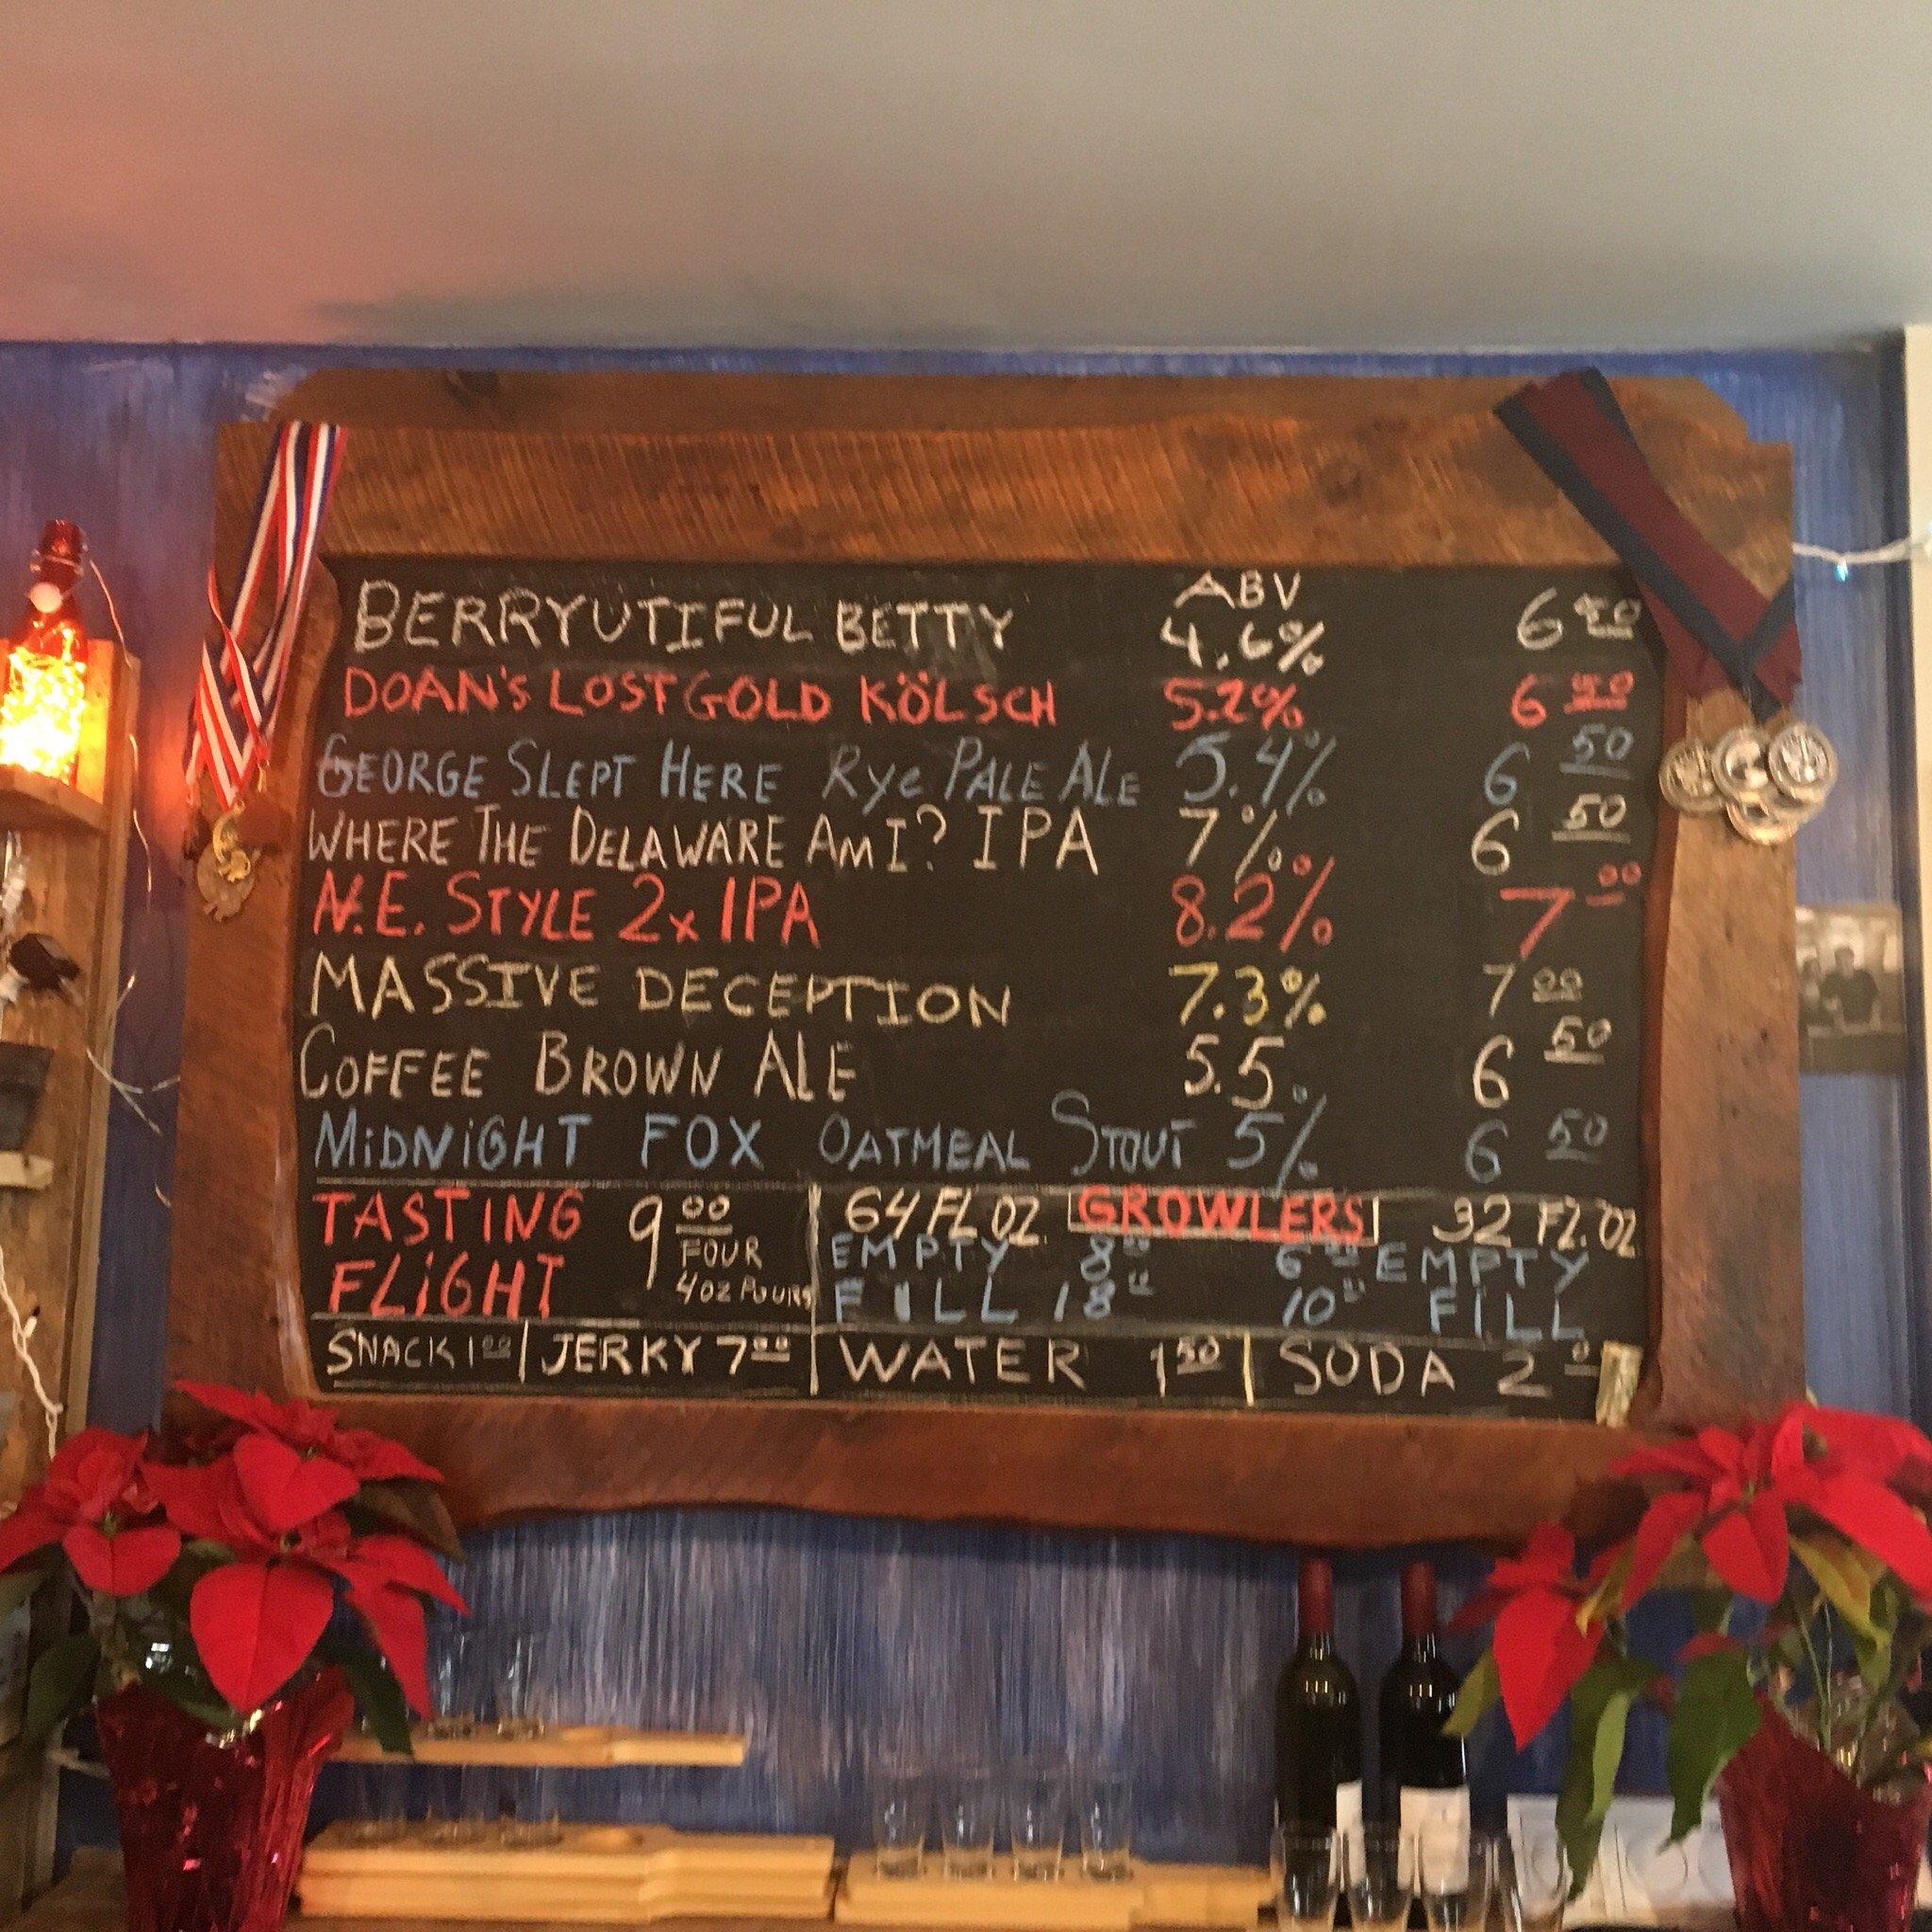 ABV
BERRYUTIFUL BETTY 4.6% 6 50
DOAN'S LOST GOLD KÖLSCH 5.2% 6 50
GEORGE SLEPT HERE Rye PALE ALE 5.4% 6 50
WHERE THE DELAWARE AM I? IPA 7% 6 50
N.E. STYLE 2x IPA 8.2% 7 00
MASSIVE DECEPTION 7.3% 7 00
COFFEE BROWN ALE 5.5 6 50
MiDNiGHT FOX OATMEAL STOUT 5% 6 50
TASTING FLiGHT 9 00
FOUR
4oz POURS
64 FL OZ GROWLERS 32 FL. OZ
EMPTY 8 00 6 00 EMPTY
FILL 18 10 FILL
SNACK 1 00 JERKY 7 00 WATER 1 50 SODA 2